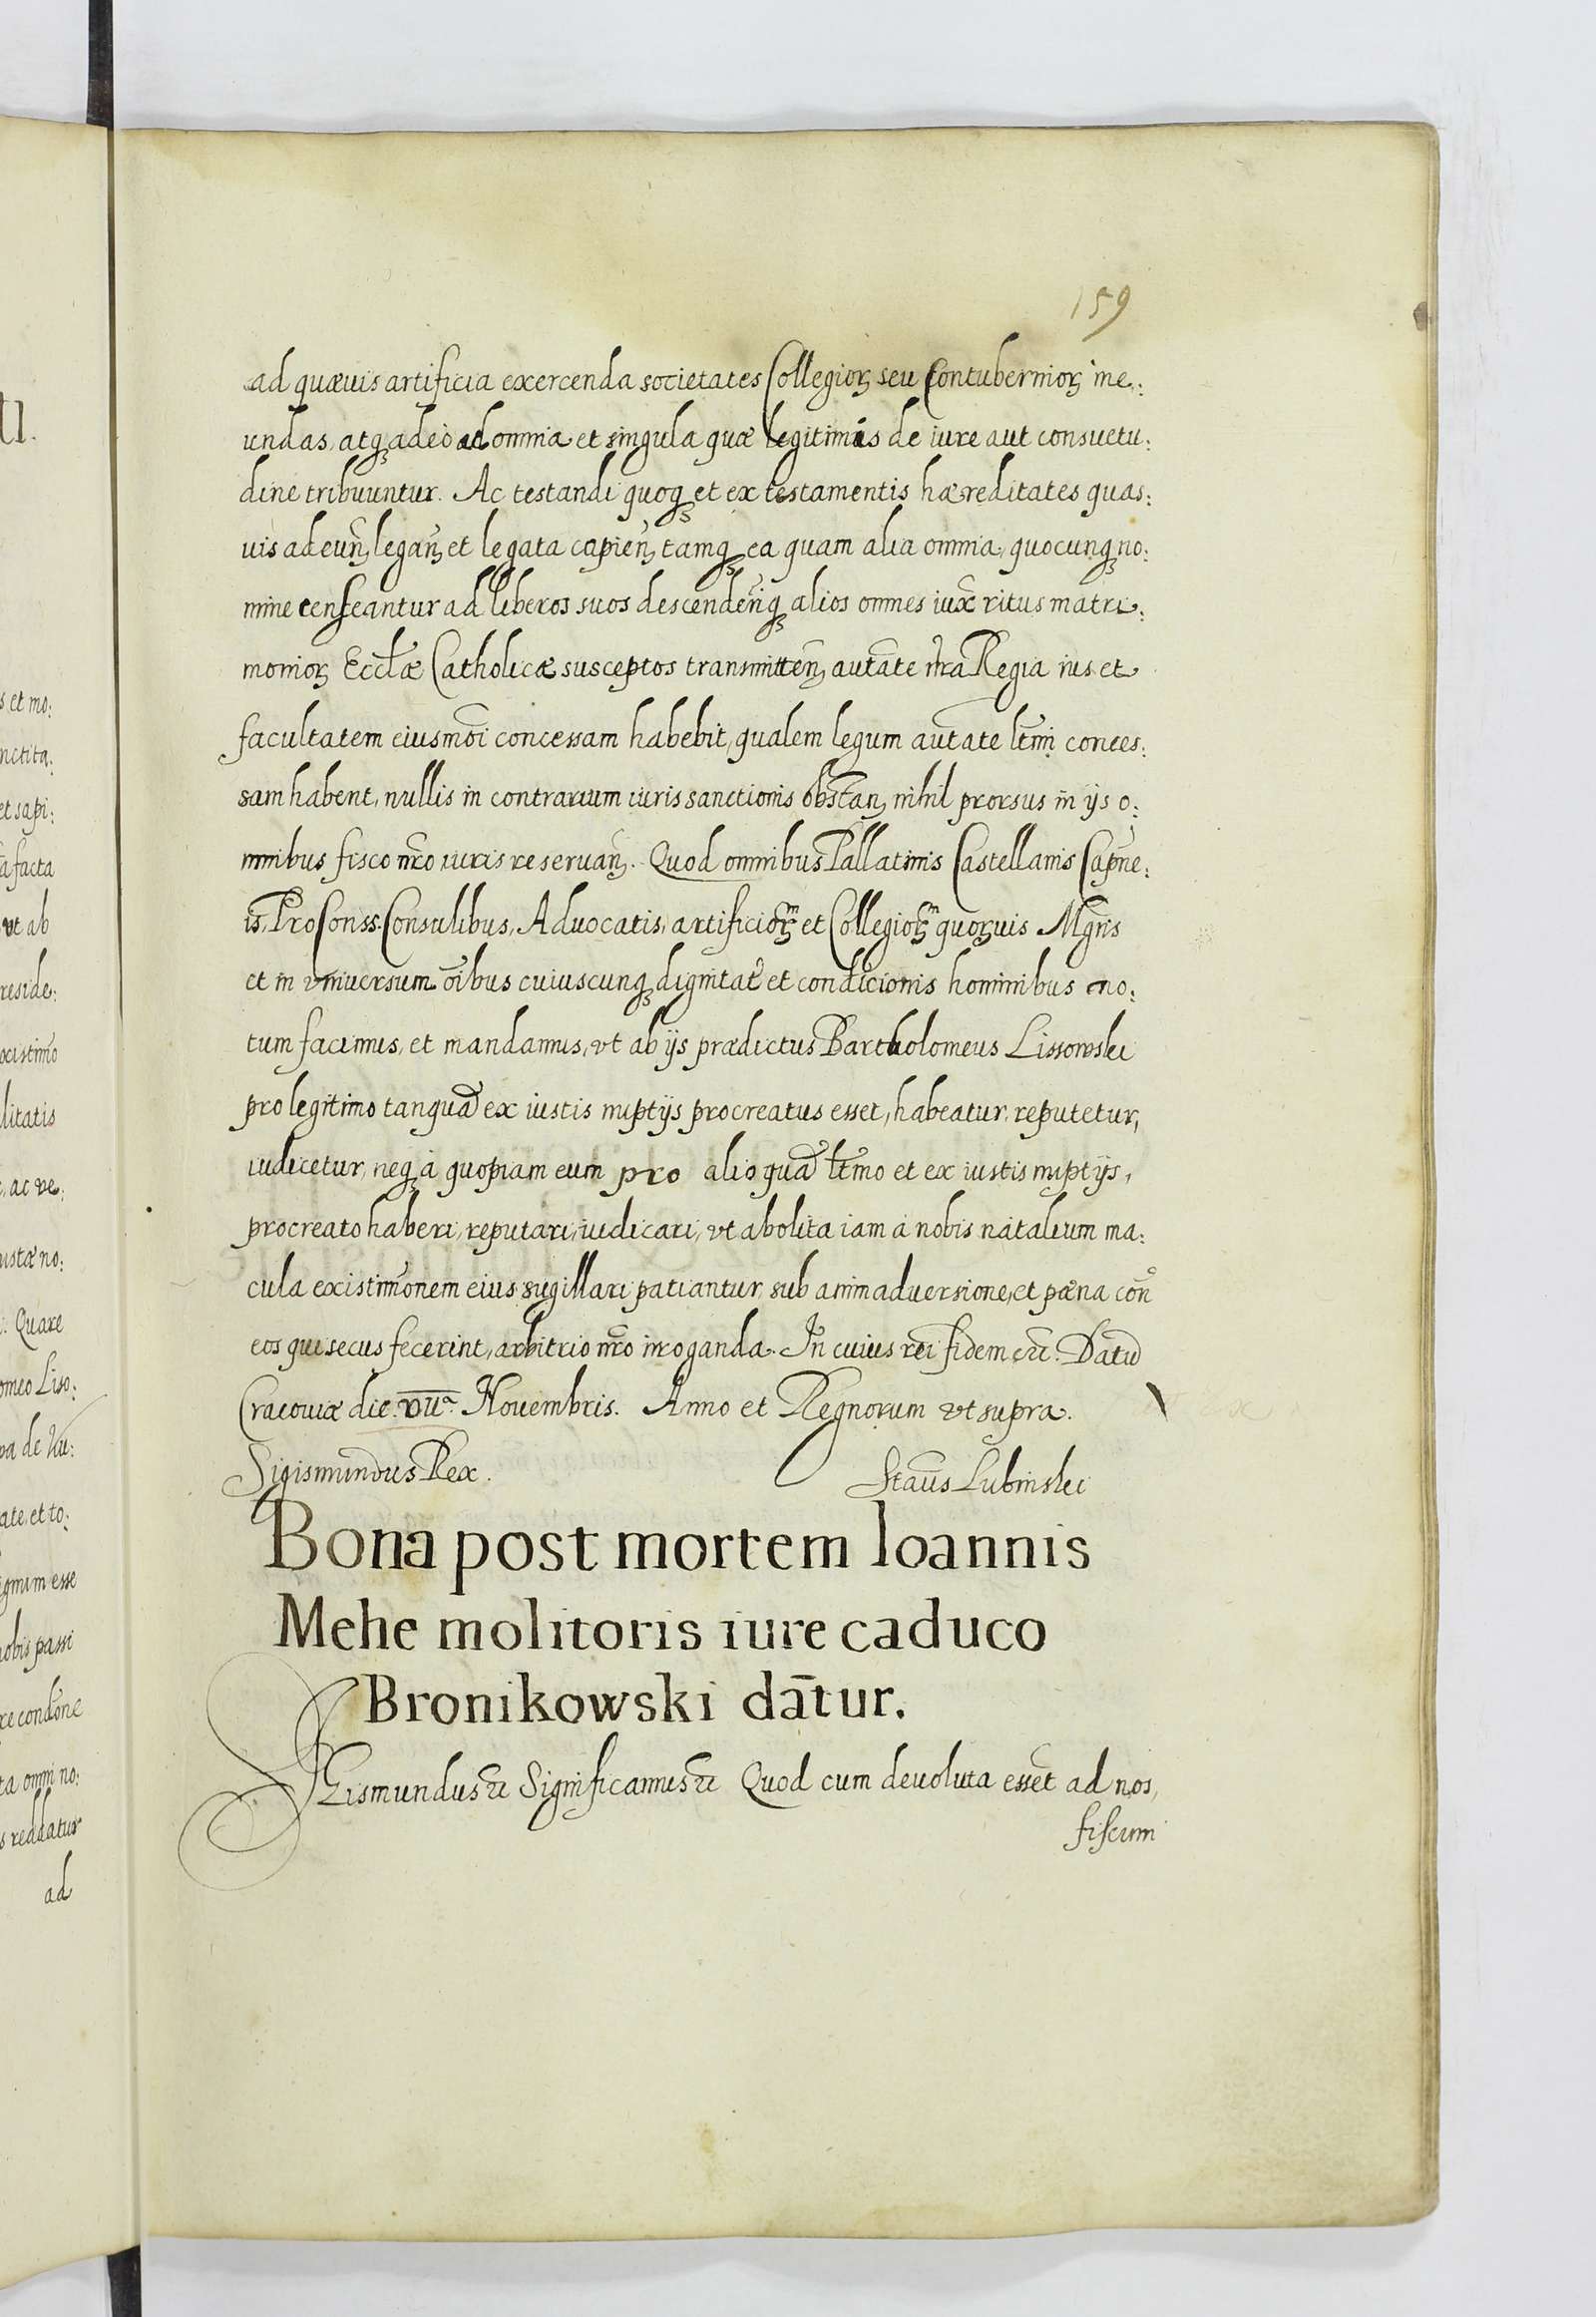 159
ad quævis artificia exercenda societates Collegioꝝ seu Contubernioꝝ ine:
undas, atqꝫ adeò ad omnia et singula quæ legitimis de iure aut consuetu:
dine tribuuntur. Ac testandi quoqꝫ et ex testamentis hæreditates quas:
uis adeuñ, legañ, et legata capieñ, tamqꝫ ea quam alia omnia, quocunqꝫ no:
mine censeantur ad liberos suos descendeñqꝫ alios omnes iux̃ ritus matri:
monioꝝ Eccl̃æ Catholicæ susceptos transmitteñ, autãte nr̃a Regia ius et
facultatem eiusmõi concessam habebit, qualem legum autãte ltĩmi conces:
sam habent, nullis in contrarium iuris sanctionis obstañ, nihil prorsus in ijs o:
mnibus fisco nr̃o iuris reseruañ. Quod omnibus Pallatinis Castellanis Capne:
is, ProConss. Consulibus, Aduocatis, artificioꝝm et Collegioꝝm quoꝝuis Mgr̃is
et in vniuersum oĩbus cuiuscunqꝫ dignitat̃ et condicionis hominibus no:
tum facimus, et mandamus, vt ab ijs prædictus Bartholomeus Lissowski
pro legitimo tanquã ex iustis nuptijs procreatus esset, habeatur, reputetur,
iudicetur, neqꝫ à quopiam eum pro alio quã ltĩmo et ex iustis nuptijs,
procreato haberi, reputari, iudicari, vt abolita iam à nobis natalium ma:
cula existimõnem eius sugillari patiantur, sub animaduersione, et pæna con̄
eos qui secus fecerint, arbitrio nr̃o irroganda. In cuius rei fidem etc̃. Datũ
Cracouiæ die. VIIª. Nouembris. Anno et Regnorum vt supra.
Sigismundus Rex.
Staũs Lubinski
Bona post mortem Ioannis
Mehe molitoris iure caduco
Bronikowski dãtur.
SIgismundus etc̃ Significamus etc̃ Quod cum deuoluta esset ad nos,
fiscum
s et mo:
et sapi:
a facta
vt ab
reside:
litatis
, ac ve:
ustæ no:
. Quare
omeo Liso:
ate, et to:
obis passi
s reddatur
ad